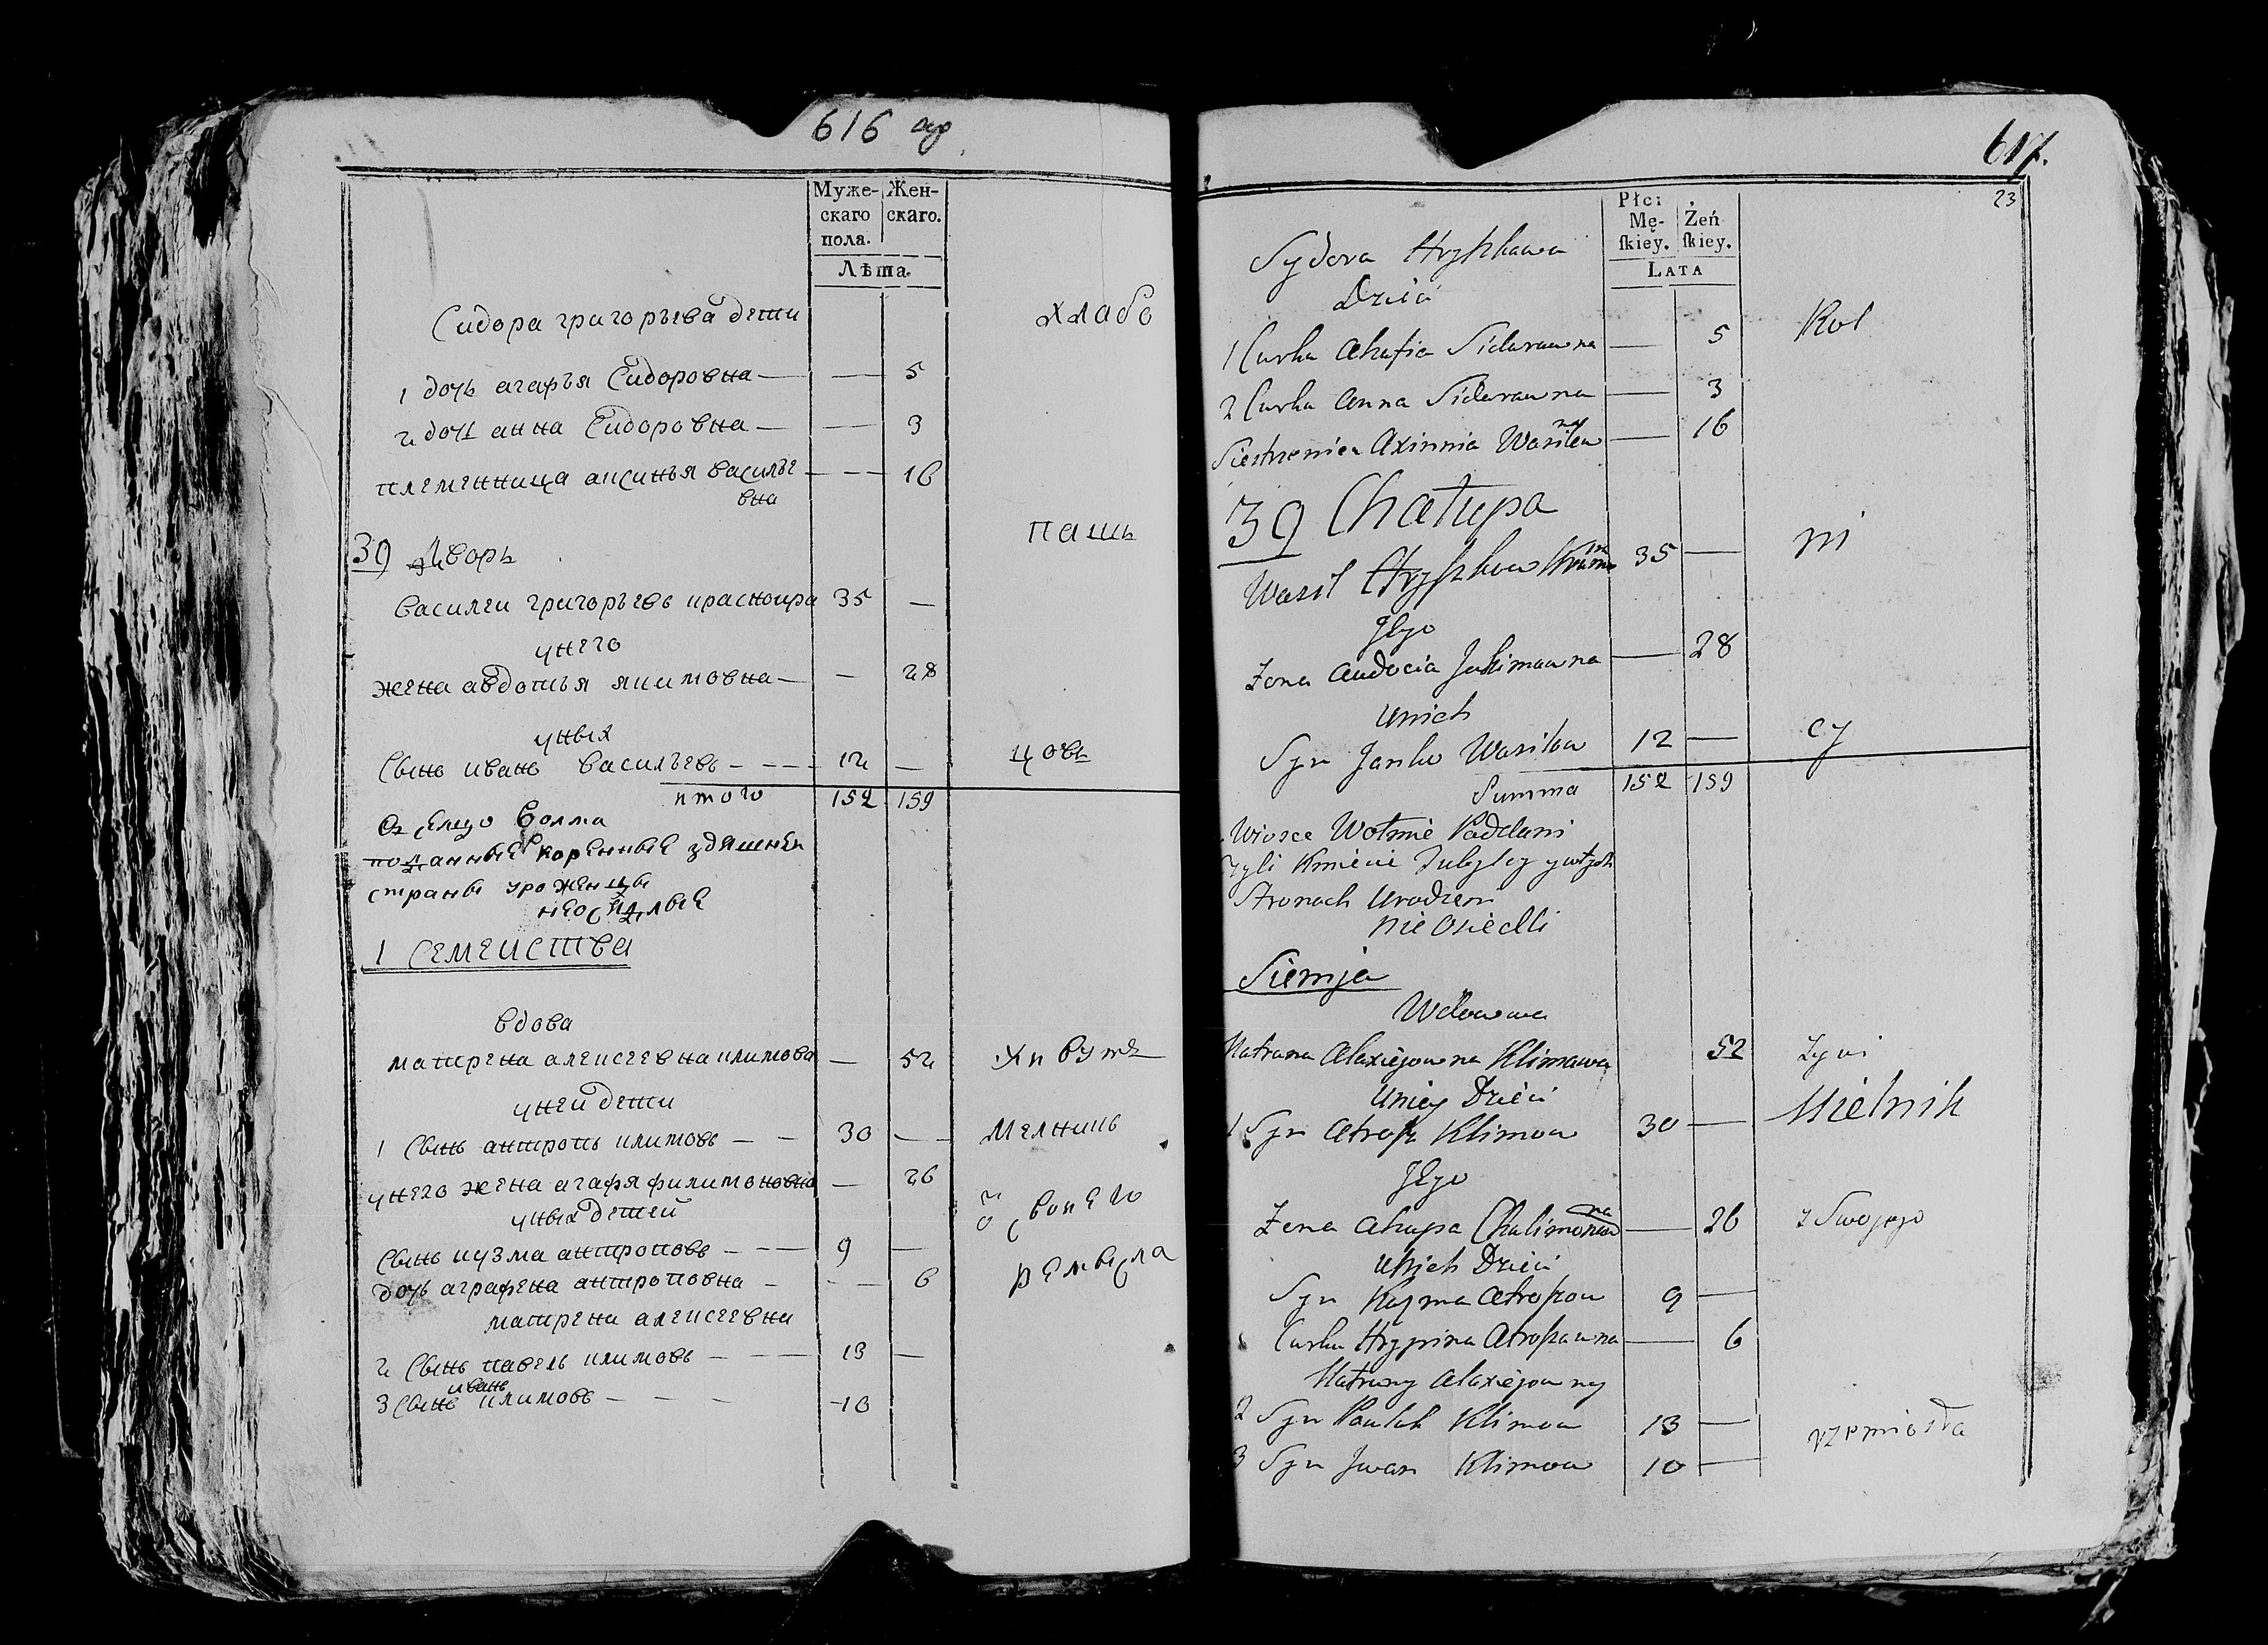 616 об
Муже-
скаго
пола.
Жен-
скаго.
Лѣта.
Сидора григорьева дети
хлабо
1 дочь агафъя Сидоровна — — 5
2 дочь анна Сидоровна — — 3
племенница аксинья василье — — 16
вна
39 Дворъ
пашь
василеи григорьевъ 35 —
унего
жена авдотья якимовна — — 28
уных
сынъ иванъ васильевъ — 12 —
цовъ
итого 152 159
сельцо волма
подданные коренные здешнеи
страны уроженцы
неоседлые
1 Семеиства
вдова
матрена алексеевна климова — 52
живутъ
уней дети
1 сынъ антропъ климовъ — 30 —
мелникъ
унего жена агафя филимоновна — 26
уных детей
своего
сынъ кузма антроповъ — 9 —
дочь аграфена антроповна — — 6
ремысла
матрены алексеевны
2 сынъ павелъ климовъ — 13 —
иванъ
3 сынъ климовъ — 10
617.
23
Płci
Mę-
ſkiey.
Żeń
ſkiey.
LATA
Sydora Hryszkawa
Dzieci
1 Curka Ahafia Sidarauna — 5
Rol
2 Curka Anna Sidarauna — 3
Siestrzenica Axinnia Wasilew — 16
na
39 Chałupa
Wasil Hryszkow 35 —
ni
Jego
Zona Audocia Jakimauna — 28
Unich
Syn Janko Wasilow 12 —
cy
Summa 152 159
Wiosce Wołmie Paddani
Stronach Urodzeni
Nie Osiedli
Siemja
Wdowa
Matruna Alaxiejowna Klimawa 52
Zywi
Uniey Dzieci
1 Syn Atrop Klimow 30 —
Mielnik
Jego
na
Zena Ahapa Chalimonaw — 26
z Swojego
Unich Dzieci
Syn Kuzma Atropow 9 —
Curka Hrypina Atropawna — 6
Matruny Alaxiejowny
2 Syn Pauluk Klimow 13 —
rzemiosła
3 Syn Jwan Klimow 10 —